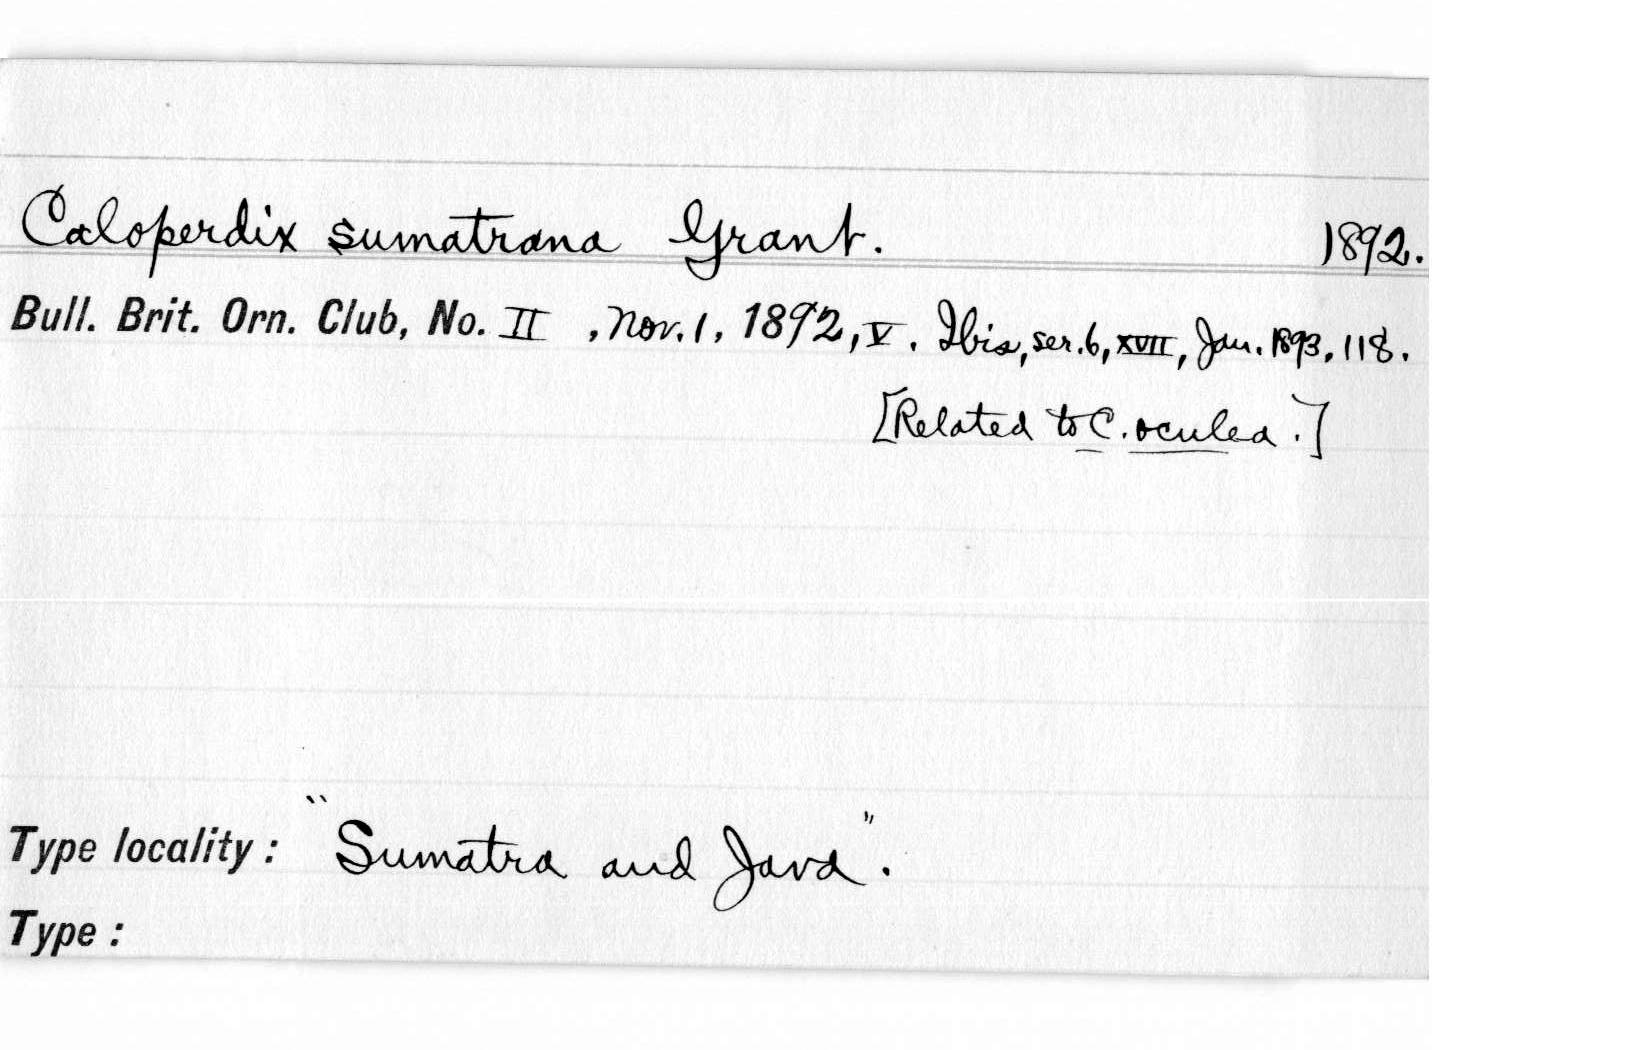 Caloperdix sumatrana Grant. 1892.
Bull. Brit. Orn. Club, No. II , Nov. 1, 1892, V. Ibis, ser. 6, XVII, Jan. 1893, 118.
[Related to C. oculea.]
Type locality: "Sumatra and Java".
Type: